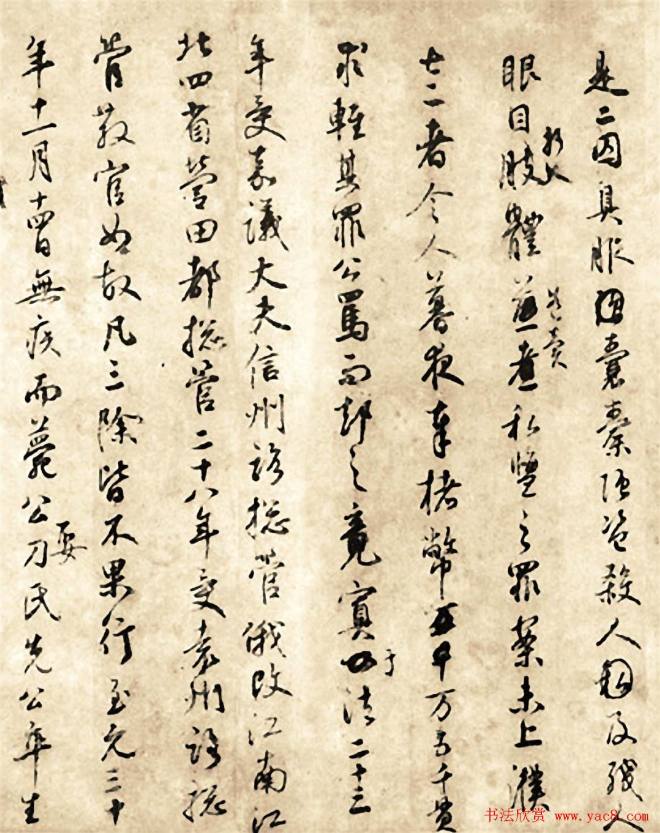 是二囚具服囊橐張盜殺人及殘人
眼目折人肢體煮私鹽之罪案未上濮
士二者令人暮夜奉楮幣万貫
求輕其罪公罵而却之竟寘于法二十三
年受嘉議大夫信州路総管俄改江南江
北四省營田都総管二十八年受袁州路総
管散官如故凡三除皆不果行至元三十
年十一月十四日無疾而薨公娶刀氏先公卒生
书法欣赏 www.yac8.com